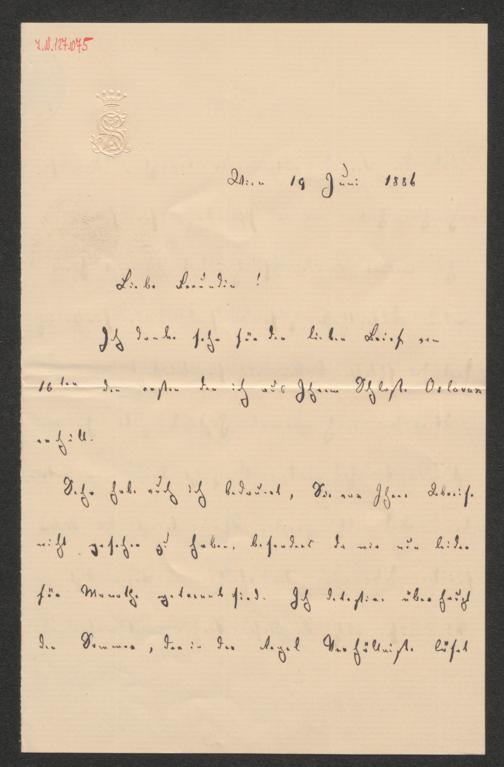 I.N.127.075
Wien 19 Juni 1886
Liebe Freundin!
Ich danke sehr für den lieben Brief vom
16ten den ersten den ich aus Ihrem Schloße Oslavan
erhielt.
Sehr habe auch ich bedauert, Sie vor Ihrer Abreise
nicht gesehen zu haben, besonders da wir nun leider
für Monathe getrennt sind. Ich detestire überhaupt
den Sommer, der in der Regel Verhältniße löset